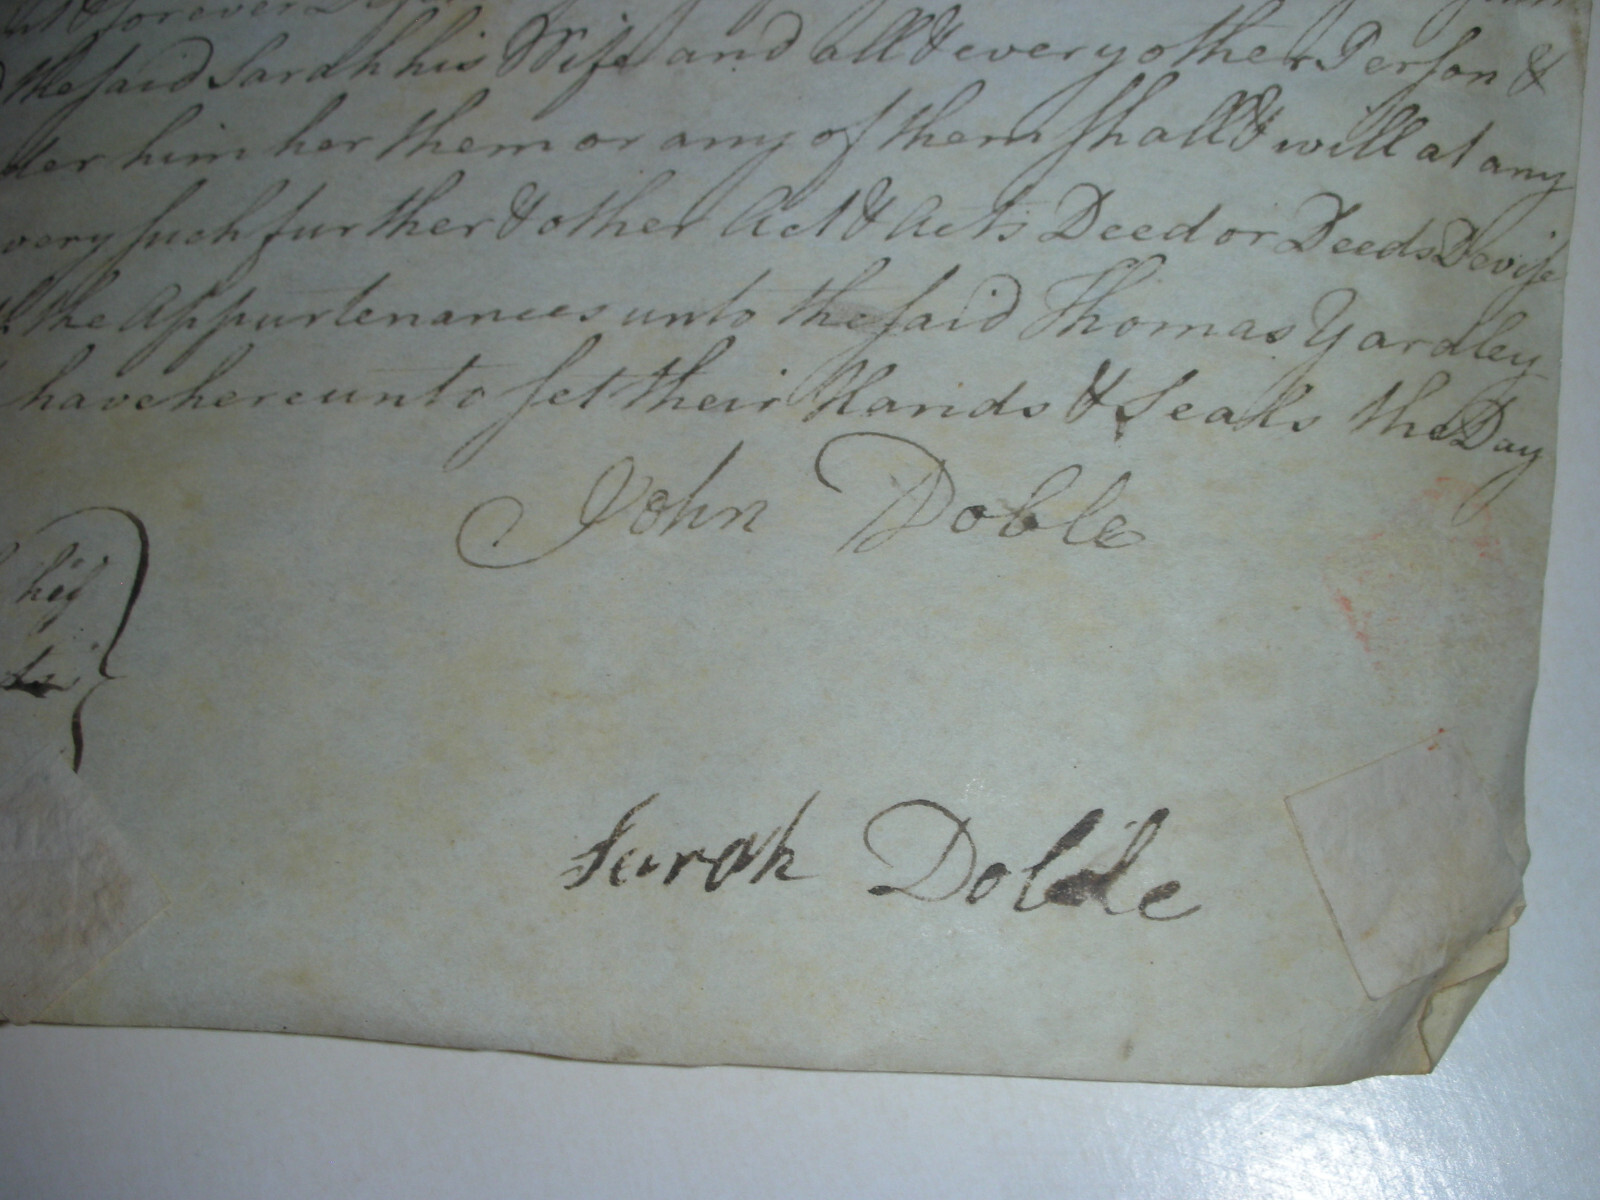 forever
the said Sarah his Wife and all & every other Person &
der him her them or any of them shall & will at any
very such further & other Act & Acts Deed or Deeds Devise
the Appurtenances unto the said Thomas Yardley
have hereunto set their Hands & Seals the Day
John Doble
Sarah Doble